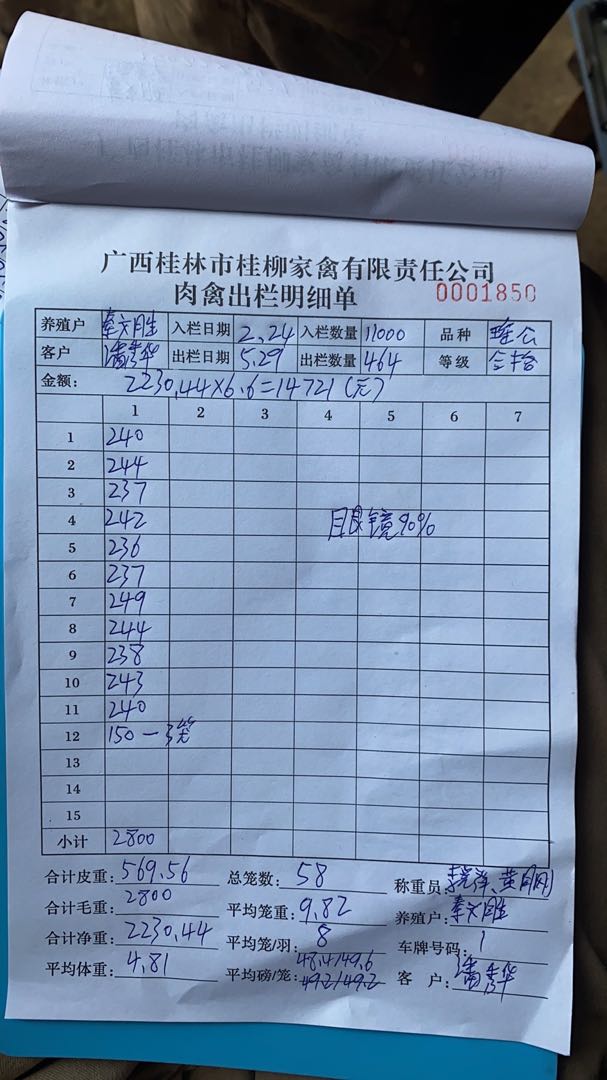 广西桂林市桂柳家禽有限责任公司
肉禽出栏明细单 0001850
养殖户 秦文胜 入栏日期 2.24 入栏数量 11000 品种
客户 潘秀华 出栏日期 5.29 出栏数量 464 等级 合格
金额: 2230.44×6.6=14721(元)
1 2 3 4 5 6 7
1 240
2 244
3 237
4 242 眼镜90%
5 236
6 237
7 249
8 244
9 238
10 243
11 240
12 150-3笼
13
14
15
小计 2800
合计皮重: 569.56 总笼数: 58 称重员:
合计毛重: 2800 平均笼重: 9.82 养殖户: 秦文胜
合计净重: 2230.44 平均笼/羽: 8 车牌号码: 1
平均体重: 4.81 平均磅/笼: 48.4/49.6 49.2/49.2 客户: 潘秀华